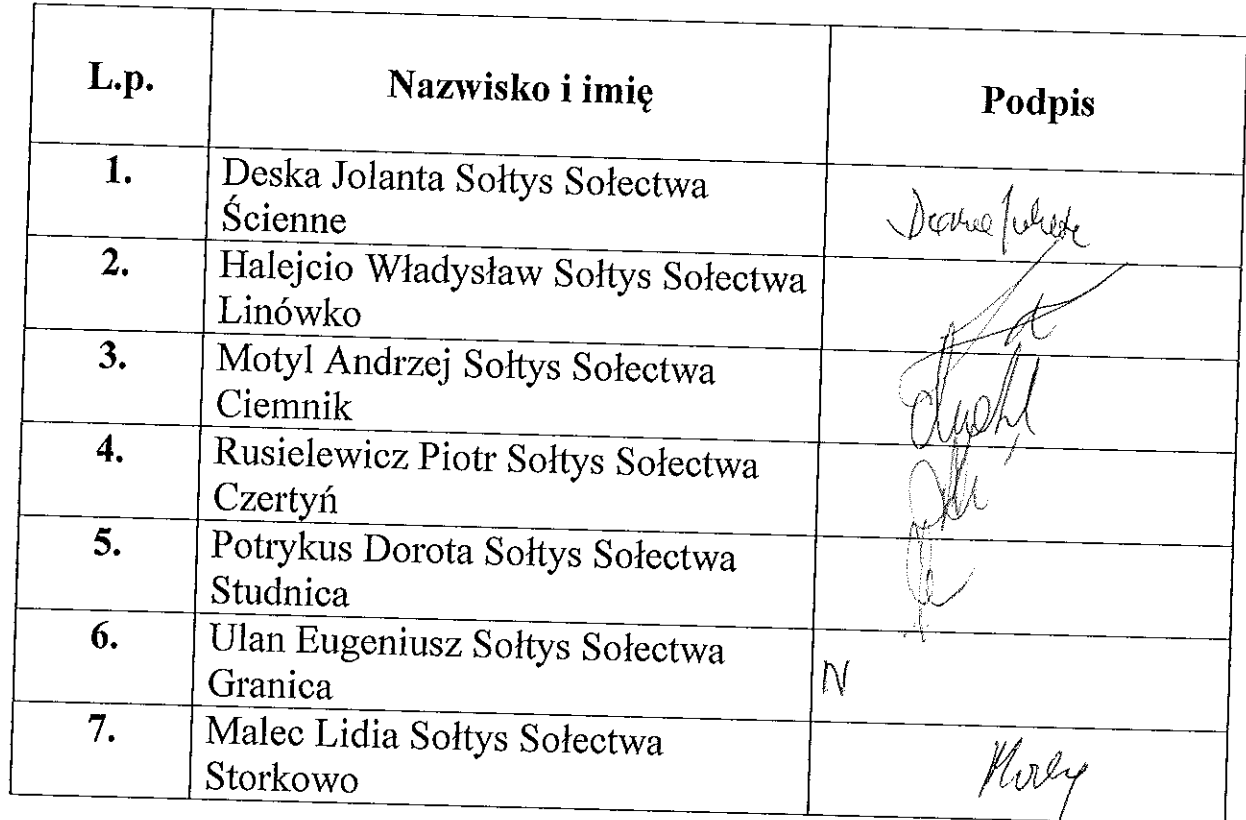 L.p. Nazwisko i imię Podpis
1. Deska Jolanta Sołtys Sołectwa
Ścienne
2. Halejcio Władysław Sołtys Sołectwa
Linówko
3. Motyl Andrzej Sołtys Sołectwa
Ciemnik
4. Rusielewicz Piotr Sołtys Sołectwa
Czertyń
5. Potrykus Dorota Sołtys Sołectwa
Studnica
6. Ulan Eugeniusz Sołtys Sołectwa
Granica N
7. Malec Lidia Sołtys Sołectwa
Storkowo